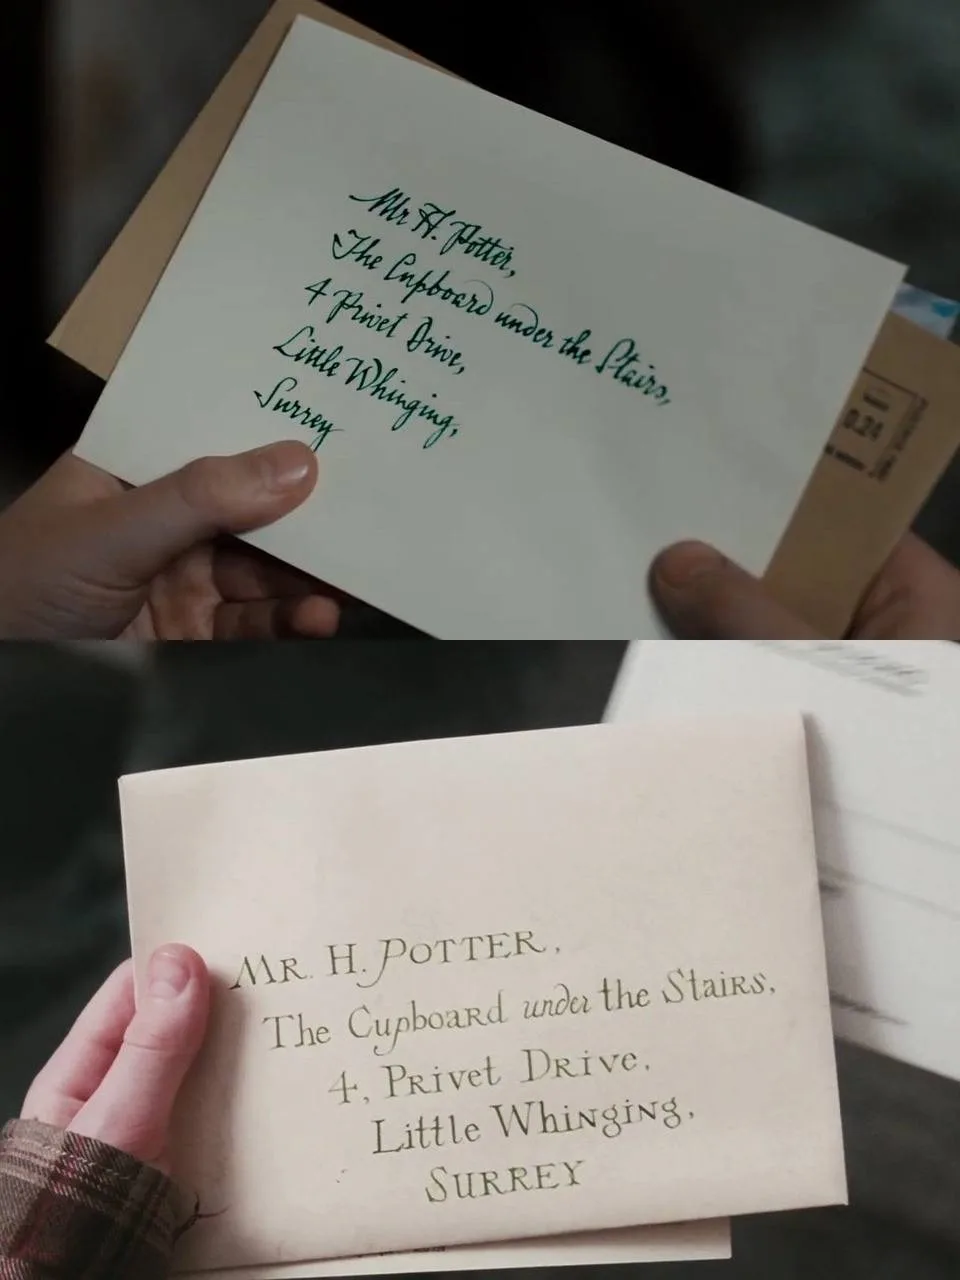 Mr H. Potter,
The Cupboard under the Stairs,
4 Privet Drive,
Little Whinging,
Surrey
0.24
MR. H. POTTER,
The Cupboard under the Stairs,
4, Privet Drive,
Little Whinging,
SURREY